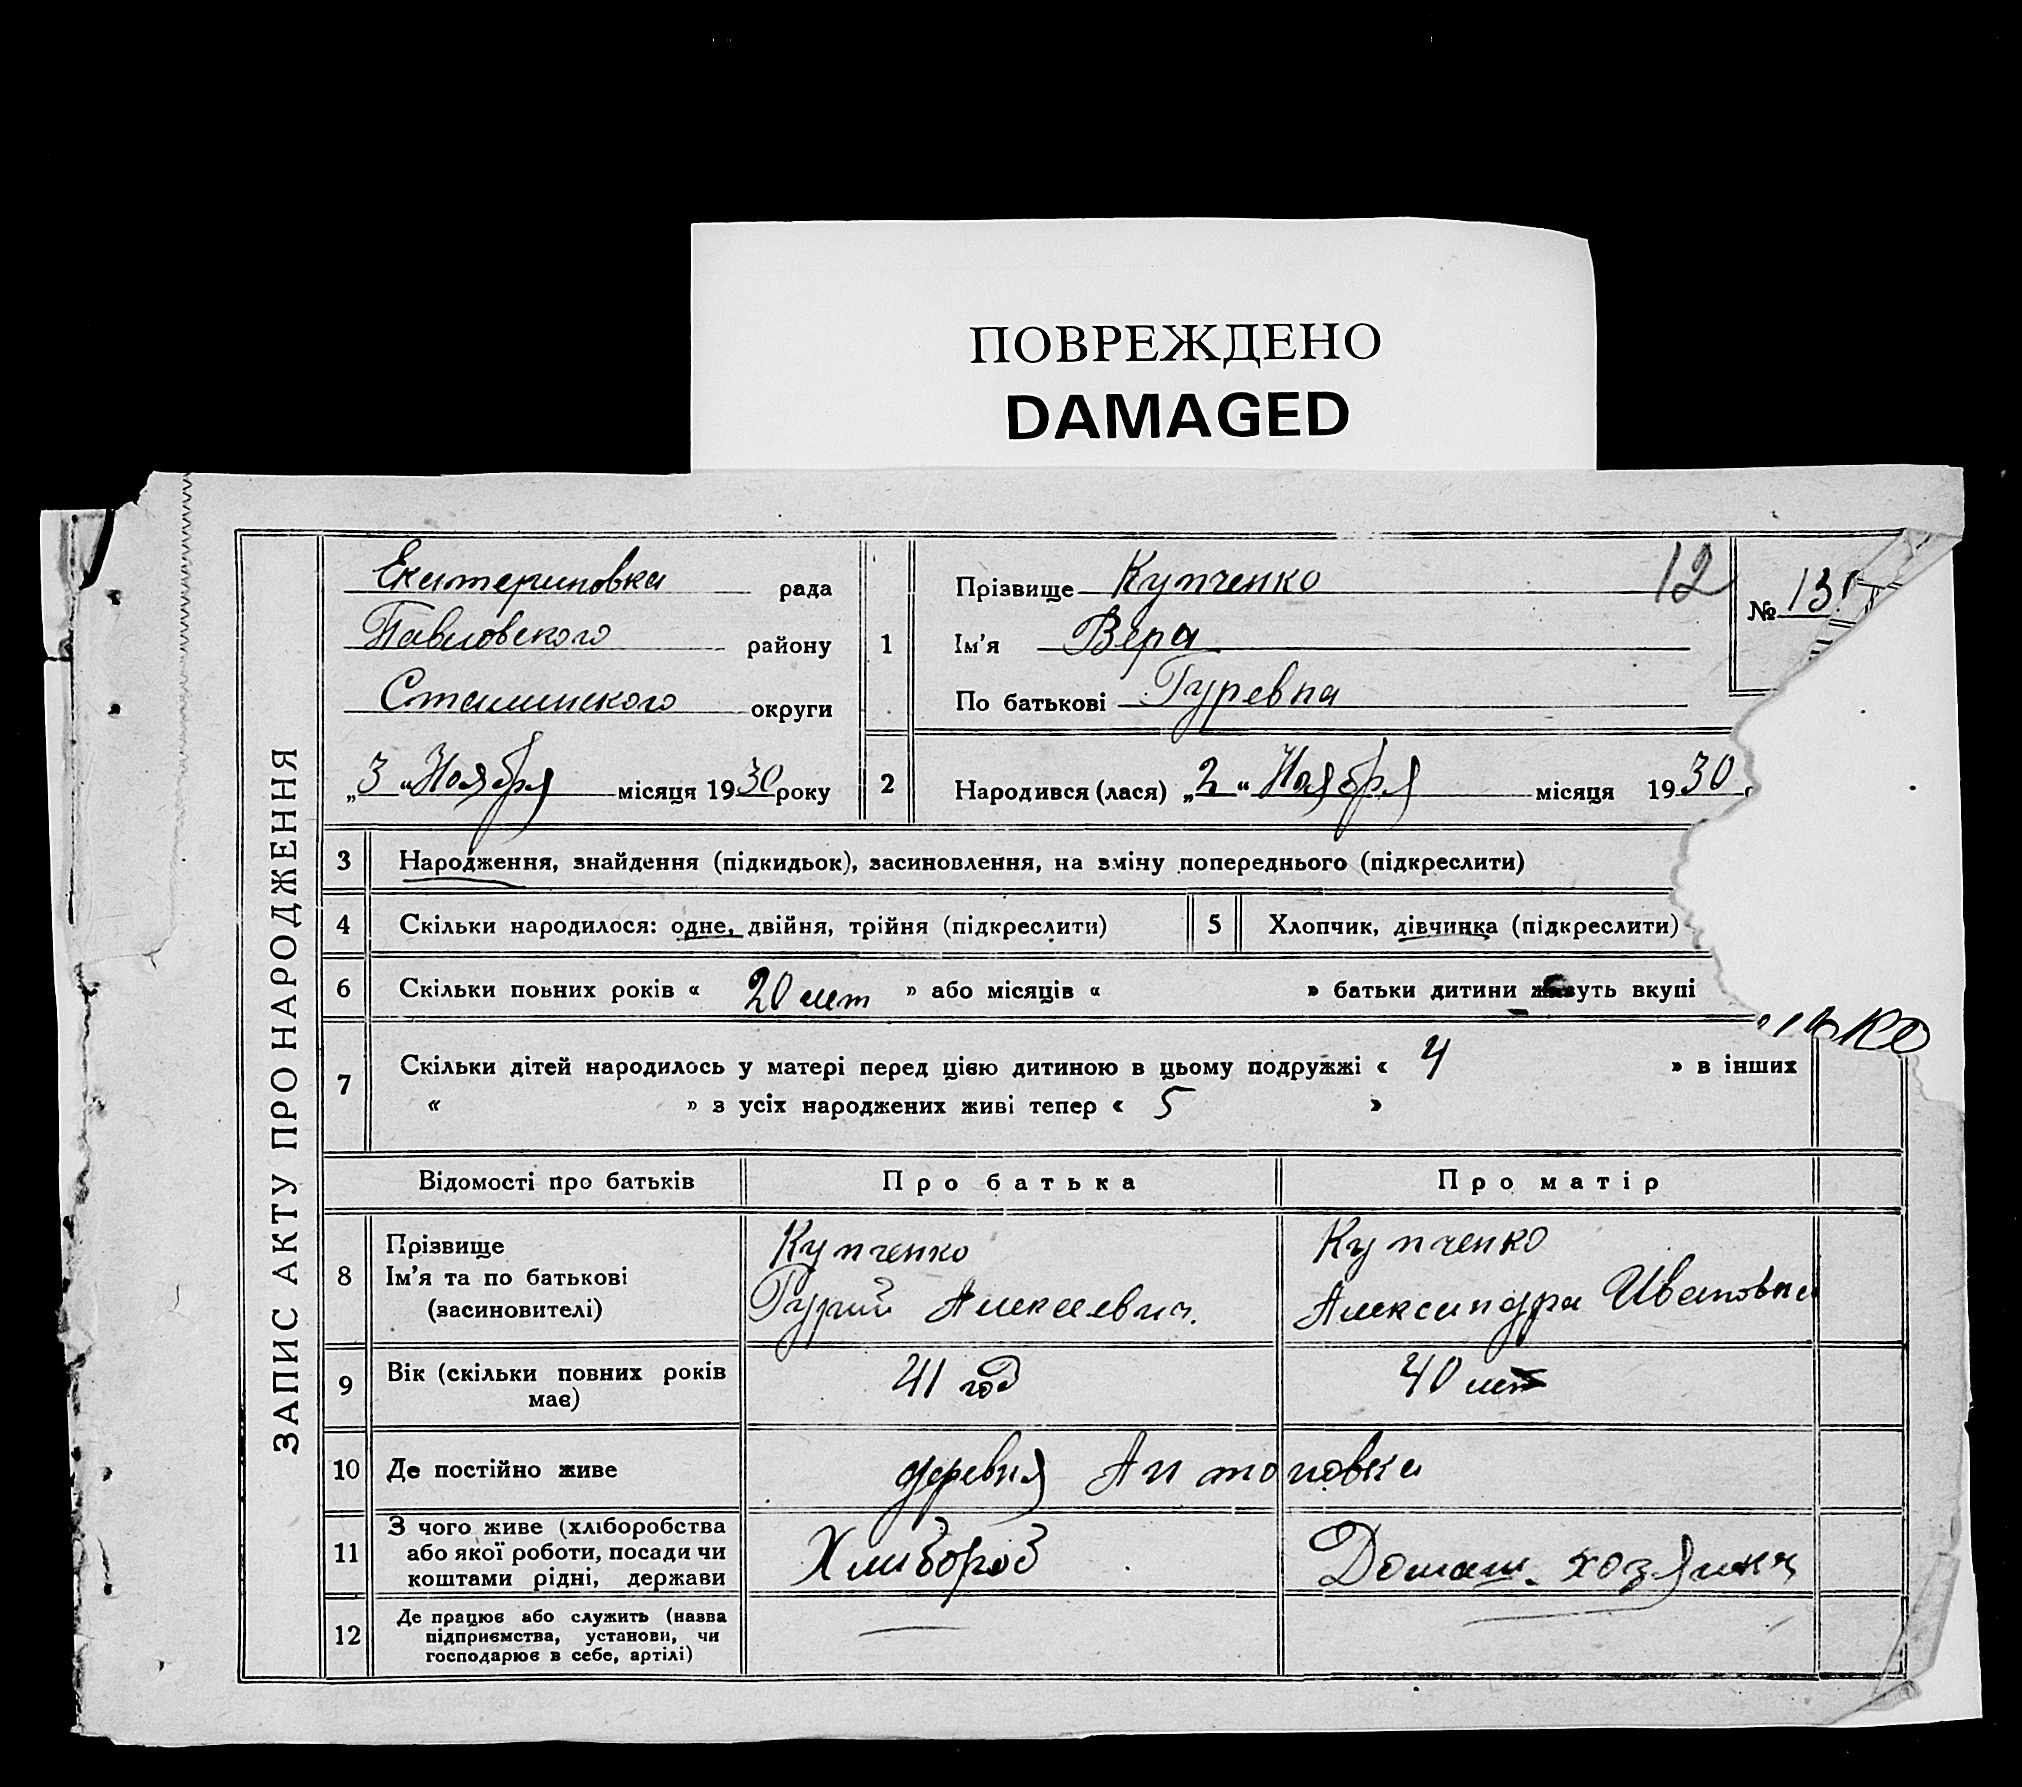 ПОВРЕЖДЕНО
DAMAGED
ЗАПИС АКТУ ПРО НАРОДЖЕННЯ
Екатериновка рада
Павловского району
Сталинского округи
„3" Ноября місяця 1930 року
1
Прізвище Купченко
12
Ім'я Вера
По батькові Гуревна
№ 13
2
Народився (лася) „2" Ноября місяця 1930
3 Народження, знайдення (підкидьок), засиновлення, на зміну попереднього (підкреслити)
4 Скільки народилося: одне, двійня, трійня (підкреслити)
5 Хлопчик, дівчинка (підкреслити)
6 Скільки повних років « 20 лет » або місяців « » батьки дитини живуть вкупі
7 Скільки дітей народилось у матері перед цією дитиною в цьому подружжі « 4 » в інших
« » з усіх народжених живі тепер « 5 »
Відомості про батьків Про батька Про матір
8
Прізвище
Ім'я та по батькові
(засиновителі)
Купченко
Гурий Алексеевич.
Купченко
Александра Ивановна
9
Вік (скільки повних років
має)
41 год
40 лет
10 Де постійно живе деревня Антоновка
11
З чого живе (хліборобства
або якої роботи, посади чи
коштами рідні, держави
Хлибороб
Домаш. хозяйка
12
Де працює або служить (назва
підприємства, установи, чи
господарює в себе, артілі)